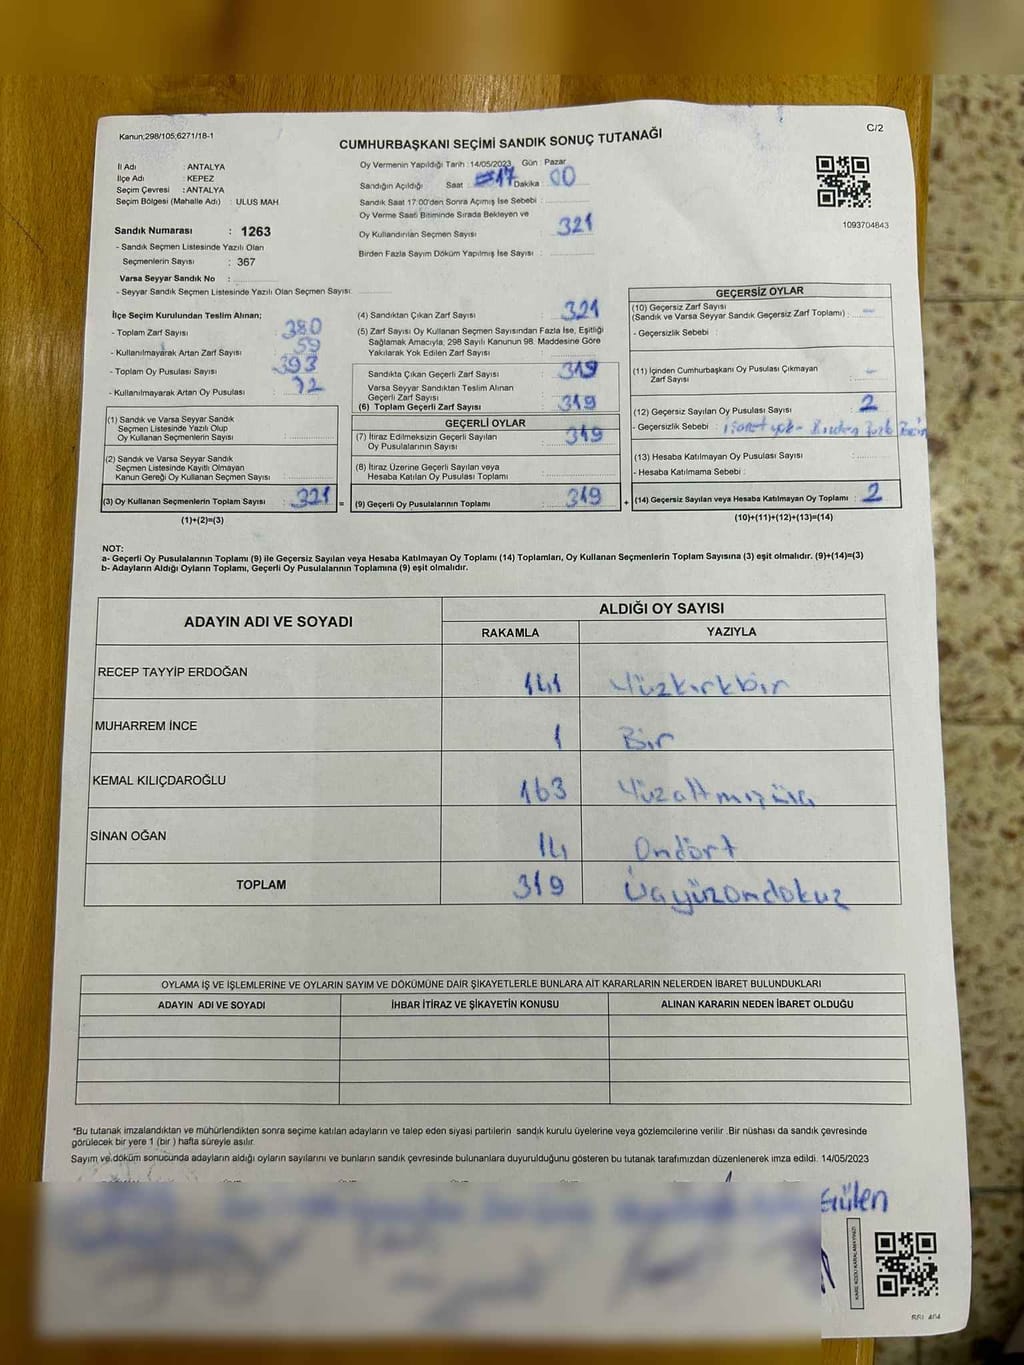 Kanun;298/105;6271/18-1
C/2
CUMHURBAŞKANI SEÇİMİ SANDIK SONUÇ TUTANAĞI
İl Adı : ANTALYA
İlçe Adı : KEPEZ
Seçim Çevresi : ANTALYA
Seçim Bölgesi (Mahalle Adı) : ULUS MAH.
Oy Vermenin Yapıldığı Tarih : 14/05/2023 Gün : Pazar
Sandığın Açıldığı Saat : 17 Dakika : 00
Sandık Saat 17:00'den Sonra Açımış İse Sebebi :
Oy Verme Saati Bitiminde Sırada Bekleyen ve
Oy Kullandırılan Seçmen Sayısı : 321
Birden Fazla Sayım Döküm Yapılmış İse Sayısı :
1093704843
Sandık Numarası : 1263
- Sandık Seçmen Listesinde Yazılı Olan
Seçmenlerin Sayısı : 367
Varsa Seyyar Sandık No :
- Seyyar Sandık Seçmen Listesinde Yazılı Olan Seçmen Sayısı:
İlçe Seçim Kurulundan Teslim Alınan;
- Toplam Zarf Sayısı : 380
- Kullanılmayarak Artan Zarf Sayısı : 59
- Toplam Oy Pusulası Sayısı : 393
- Kullanılmayarak Artan Oy Pusulası : 72
(1) Sandık ve Varsa Seyyar Sandık
Seçmen Listesinde Yazılı Olup
Oy Kullanan Seçmenlerin Sayısı :
(2) Sandık ve Varsa Seyyar Sandık
Seçmen Listesinde Kayıtlı Olmayan
Kanun Gereği Oy Kullanan Seçmen Sayısı :
(3) Oy Kullanan Seçmenlerin Toplam Sayısı : 321 =
(1)+(2)=(3)
(4) Sandıktan Çıkan Zarf Sayısı : 321
(5) Zarf Sayısı Oy Kullanan Seçmen Sayısından Fazla İse, Eşitliği
Sağlamak Amacıyla; 298 Sayılı Kanunun 98. Maddesine Göre
Yakılarak Yok Edilen Zarf Sayısı :
Sandıkta Çıkan Geçerli Zarf Sayısı : 319
Varsa Seyyar Sandıktan Teslim Alınan
Geçerli Zarf Sayısı :
(6) Toplam Geçerli Zarf Sayısı : 319
GEÇERLİ OYLAR
(7) İtiraz Edilmeksizin Geçerli Sayılan
Oy Pusulalarının Sayısı : 319
(8) İtiraz Üzerine Geçerli Sayılan veya
Hesaba Katılan Oy Pusulaları Toplamı :
(9) Geçerli Oy Pusulalarının Toplamı : 319 +
GEÇERSİZ OYLAR
(10) Geçersiz Zarf Sayısı
(Sandık ve Varsa Seyyar Sandık Geçersiz Zarf Toplamı) : -
- Geçersizlik Sebebi :
(11) İçinden Cumhurbaşkanı Oy Pusulası Çıkmayan
Zarf Sayısı : -
(12) Geçersiz Sayılan Oy Pusulası Sayısı : 2
- Geçersizlik Sebebi : işaret yok-
(13) Hesaba Katılmayan Oy Pusulası Sayısı :
- Hesaba Katılmama Sebebi :
(14) Geçersiz Sayılan veya Hesaba Katılmayan Oy Toplamı : 2
(10)+(11)+(12)+(13)=(14)
NOT:
a- Geçerli Oy Pusulalarının Toplamı (9) ile Geçersiz Sayılan veya Hesaba Katılmayan Oy Toplamı (14) Toplamları, Oy Kullanan Seçmenlerin Toplam Sayısına (3) eşit olmalıdır. (9)+(14)=(3)
b- Adayların Aldığı Oyların Toplamı, Geçerli Oy Pusulalarının Toplamına (9) eşit olmalıdır.
ADAYIN ADI VE SOYADI
ALDIĞI OY SAYISI
RAKAMLA YAZIYLA
RECEP TAYYİP ERDOĞAN 141 Yüzkırkbir
MUHARREM İNCE 1 Bir
KEMAL KILIÇDAROĞLU 163 Yüzaltmışüç
SİNAN OĞAN 14 Ondört
TOPLAM 319 Üçyüzondokuz
OYLAMA İŞ VE İŞLEMLERİNE VE OYLARIN SAYIM VE DÖKÜMÜNE DAİR ŞİKAYETLERLE BUNLARA AİT KARARLARIN NELERDEN İBARET BULUNDUKLARI
ADAYIN ADI VE SOYADI İHBAR İTİRAZ VE ŞİKAYETİN KONUSU ALINAN KARARIN NEDEN İBARET OLDUĞU
*Bu tutanak imzalandıktan ve mühürlendikten sonra seçime katılan adayların ve talep eden siyasi partilerin sandık kurulu üyelerine veya gözlemcilerine verilir .Bir nüshası da sandık çevresinde
görülecek bir yere 1 (bir ) hafta süreyle asılır.
Sayım ve döküm sonucunda adayların aldığı oyların sayılarını ve bunların sandık çevresinde bulunanlara duyurulduğunu gösteren bu tutanak tarafımızdan düzenlenerek imza edildi. 14/05/2023
Gülen